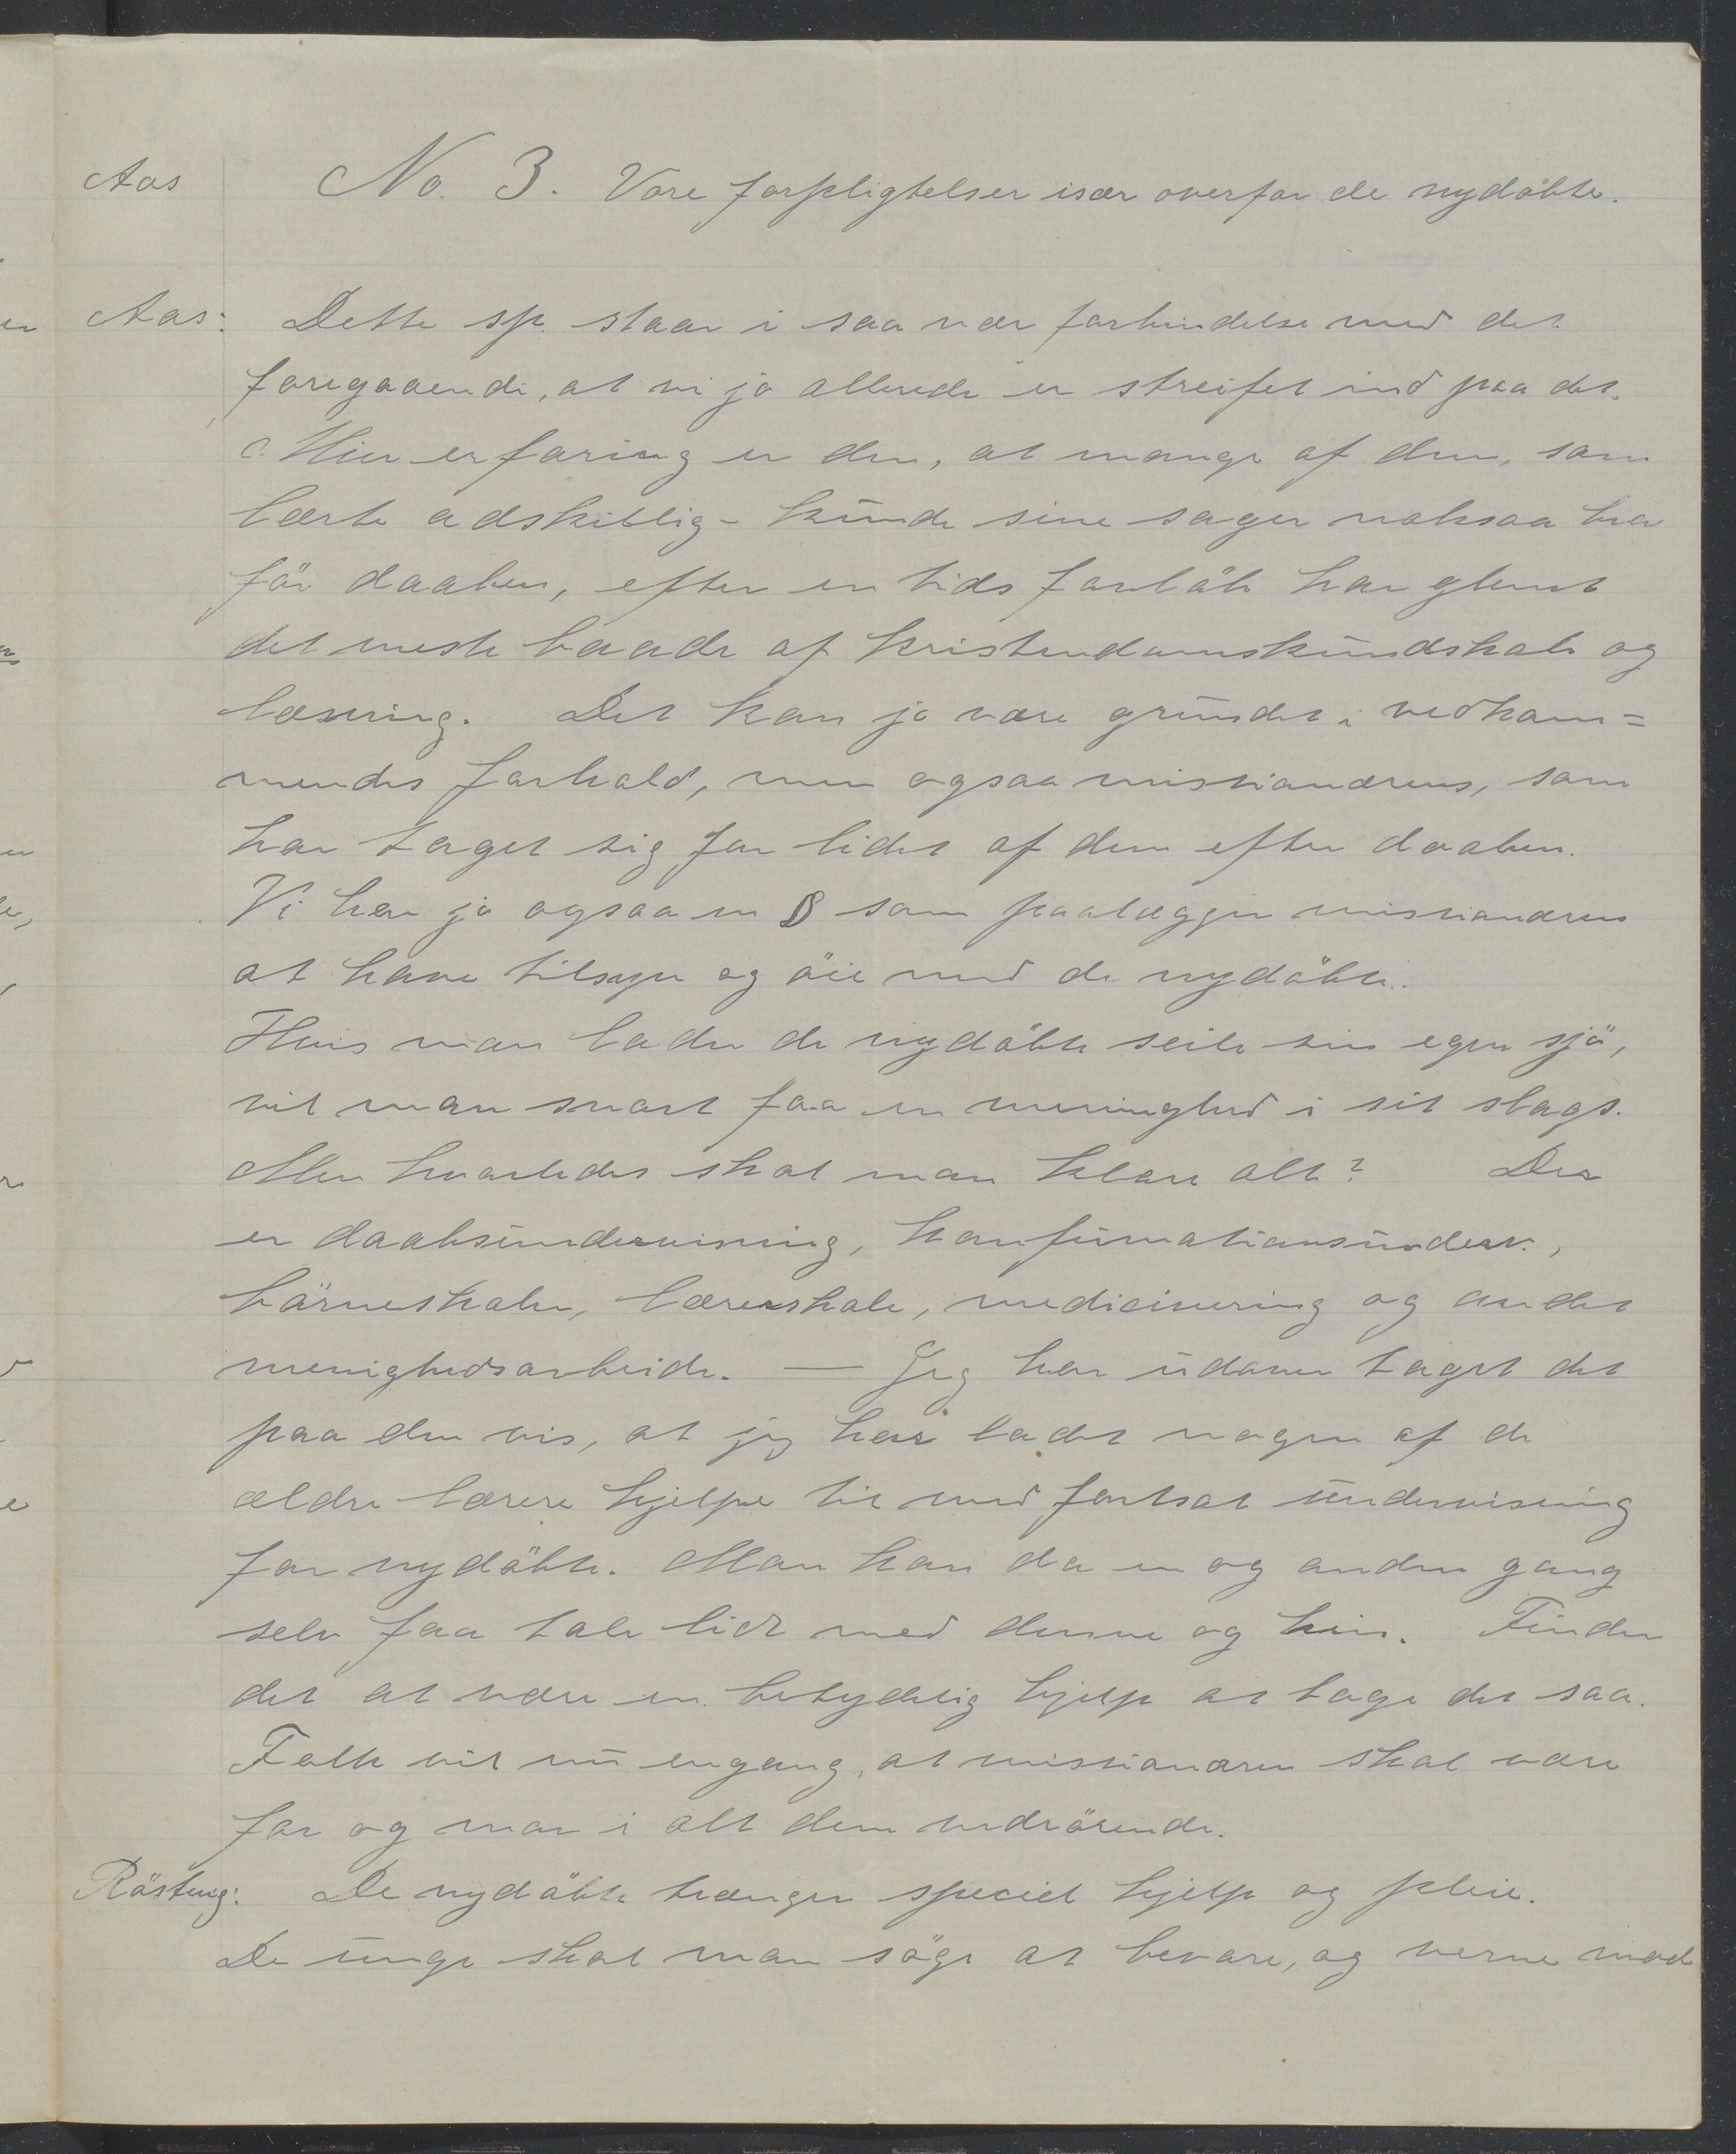 Aas No. 3. Vore forpligtelser især overfor de nydöbte.
Aas: Dette sp. staar i saa nær forbindelse med det
foregaaende, at vi jo allerede er streifet ind paa det.
Min erfaring er den, at mange af dem, som
lærte adskillig – kunde sine sager noksaa bra
för daaben, efter en tids forlöb har glemt
det meste baade af kristendomskundskab og
læsning. Det kan jo være grundet i vedkom=
mendes forhold, men ogsaa missionærens, som
har taget sig for lidet af dem efter daaben.
Vi har jo ogsaa en § som paalægger missionæren
at have tilsyn og öie med de nydöbte.
Hvis man lader de nydöbte seile sin egen sjö,
vil man snart faa en menighed i sit slags.
Men hvorledes skal man klare alt? Der
er daabsundervisning, konfirmationsunderv.,
börneskolen, lærerskole, medicinering og andet
menighedsarbeide. — Jeg har udover taget det
paa den vis, at jeg har ladet nogen af de
ældre lærere hjelpe til med fortsat undervisning
for nydöbte. Man kan da en og anden gang
selv faa tale lidt med denne og hin. Finder
det at være en betydelig hjelp at tage det saa.
Folk vil nu engang, at missionæren skal være
far og mor i alt dem vedrörende.
Röstvig: De nydöbte trænger speciel hjelp og pleie.
De unge skal man söge at bevare, og verne mod